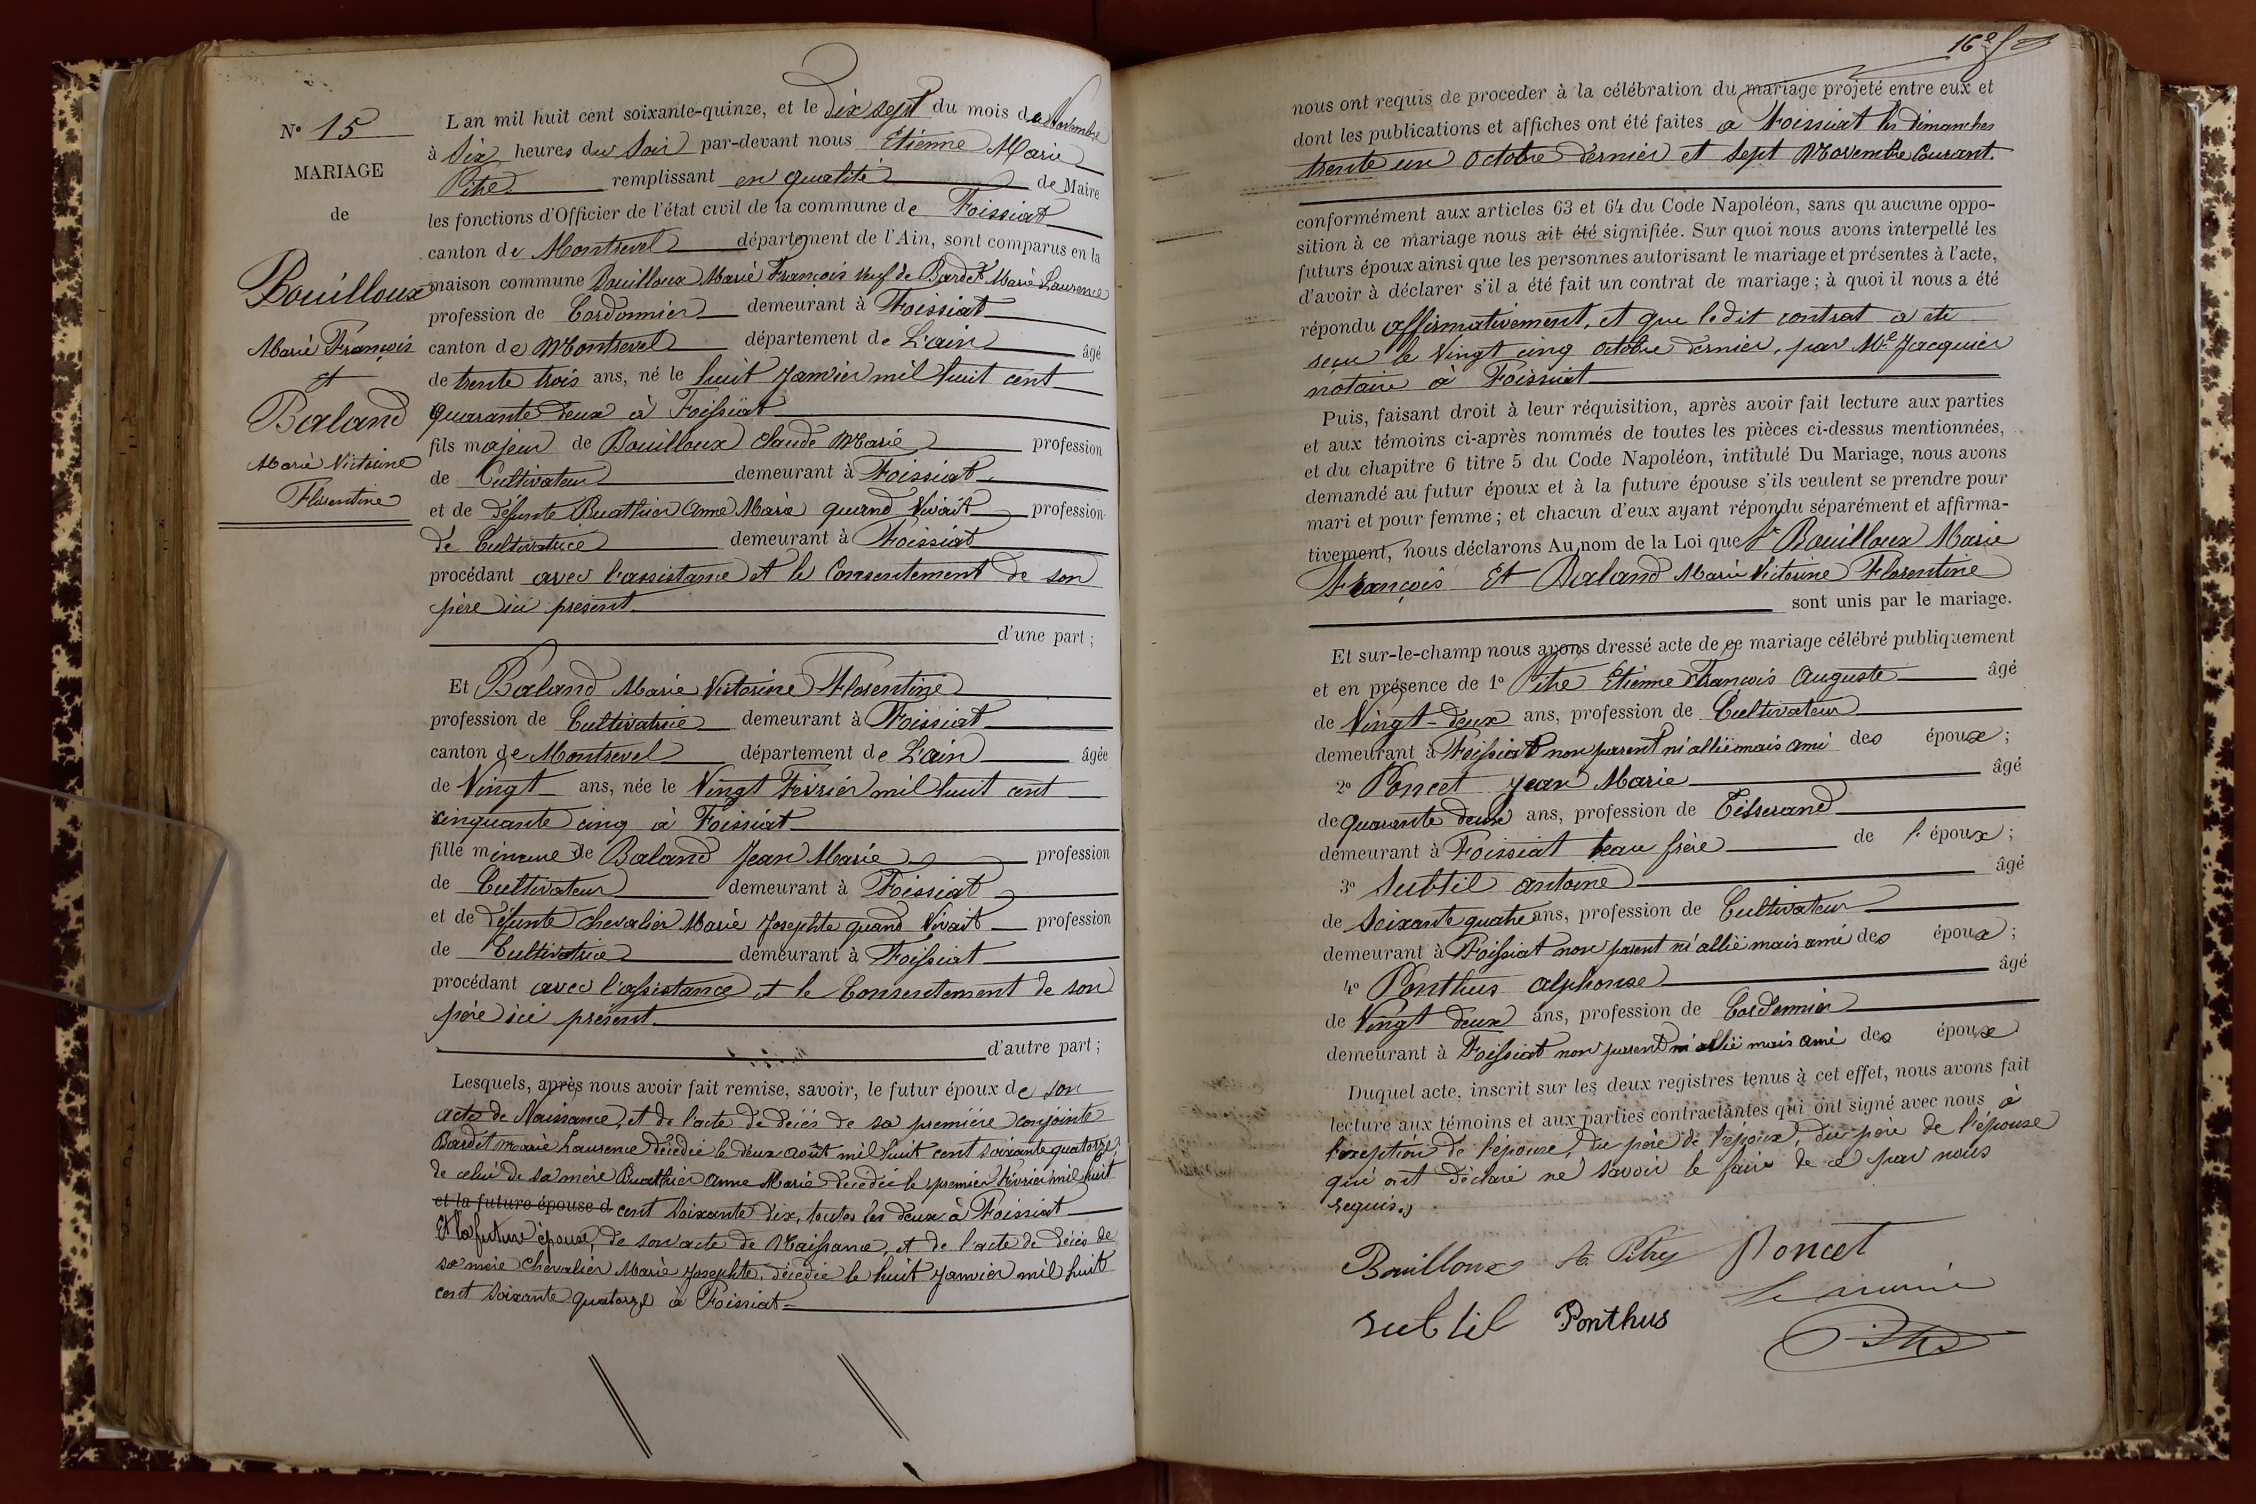 N° 15
MARIAGE
de
Bouilloux
Marie François
et
Baland
Marie Victorine
Florentine
Lan mil huit cent soixante-quinze, et le dix sept du mois de Novembre
à Six heures du Soir par-devant nous Etienne Marie
Pitre remplissant en qualité de Maire
les fonctions d'Officier de l'état civil de la commune de Foissiat
canton de Montrevel département de l'Ain, sont comparus en la
maison commune Bouilloux Marie François veuf de Bardet Marie Laurence
profession de Cordonnier demeurant à Foissiat
canton de Montrevel département de L'ain âgé
de trente trois ans, né le huit Janvier mil huit cent
quarante deux à Foissiat
fils majeur de Bouilloux Claude Marie profession
de Cultivateur demeurant à Foissiat
et de défunte Buathier Anne Marie quand Vivait profession
de Cultivatrice demeurant à Foissiat
procédant avec l'assistance et le Consentement de son
père ici présent
d'une part ;
Et Baland Marie Victorine Florentine
profession de Cultivatrice demeurant à Foissiat
canton de Montrevel département de L'ain âgée
de Vingt ans, née le Vingt Février mil huit cent
cinquante cinq à Foissiat
fille mineure de Baland Jean Marie profession
de Cultivateur demeurant à Foissiat
et de défunte Chevalier Marie Josephte quand Vivait profession
de Cultivatrice demeurant à Foissiat
procédant avec l'assistance et le Consentement de son
père ici présent
d'autre part ;
Lesquels, après nous avoir fait remise, savoir, le futur époux de son
acte de Naissance, et de l'acte de décès de sa première conjointe
Bardet Marie Laurence décédée le deux août mil huit cent soixante quatorze,
de celui de sa mère Buathier Anne Marie décédée le premier Février mil huit
et la future épouse d cent soixante dix, toutes les deux à Foissiat
Et la future épouse, de son acte de Naissance, et de l'acte de décès de
sa mère Chevalier Marie Josephte, décédée le huit Janvier mil huit
cent soixante quatorze à Foissiat
16e
nous ont requis de proceder à la célébration du mariage projeté entre eux et
dont les publications et affiches ont été faites à Foissiat les dimanches
trente un Octobre dernier et sept Novembre Courant.
conformément aux articles 63 et 64 du Code Napoléon, sans qu aucune oppo-
sition à ce mariage nous ait été signifiée. Sur quoi nous avons interpellé les
futurs époux ainsi que les personnes autorisant le mariage et présentes à l'acte,
d'avoir à déclarer s'il a été fait un contrat de mariage ; à quoi il nous a été
répondu affirmativement, et que ledit contrat a été
reçu le Vingt cinq Octobre dernier, par Me Jacquier
notaire à Foissiat
Puis, faisant droit à leur réquisition, après avoir fait lecture aux parties
et aux témoins ci-après nommés de toutes les pièces ci-dessus mentionnées,
et du chapitre 6 titre 5 du Code Napoléon, intitulé Du Mariage, nous avons
demandé au futur époux et à la future épouse s'ils veulent se prendre pour
mari et pour femme ; et chacun d'eux ayant répondu séparément et affirma-
tivement, nous déclarons Au nom de la Loi que Sr Bouilloux Marie
François Et Baland Marie Victorine Florentine
sont unis par le mariage.
Et sur-le-champ nous avons dressé acte de ce mariage célébré publiquement
et en présence de 1° Pitre Etienne François Auguste âgé
de Vingt-deux ans, profession de Cultivateur
demeurant à Foissiat non parent ni allié mais ami des époux ;
2° Poncet Jean Marie âgé
de quarante deux ans, profession de Tisserand
demeurant à Foissiat beau frère de l'époux ;
3° Subtil antoine âgé
de Soixante quatre ans, profession de Cultivateur
demeurant à Foissiat non parent ni allié mais ami des époux ;
4° Ponthus Alphonse âgé
de Vingt deux ans, profession de Cordonnier
demeurant à Foissiat non parent ni allié mais ami des époux
Duquel acte, inscrit sur les deux registres tenus à cet effet, nous avons fait
lecture aux témoins et aux parties contractantes qui ont signé avec nous à
l'exception de l'épouse, du père de l'époux, du père de l'épouse
qui ont déclaré ne savoir le faire de ce par nous
requis.
Bouilloux Poncet
Le maire
subtil Ponthus